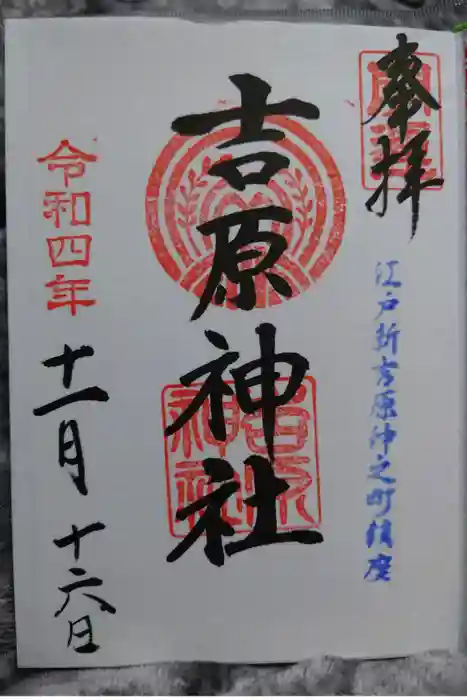 奉拝
江戸新吉原仲之町鎮座
吉原神社
吉原神社
令和四年
十一月
十六日